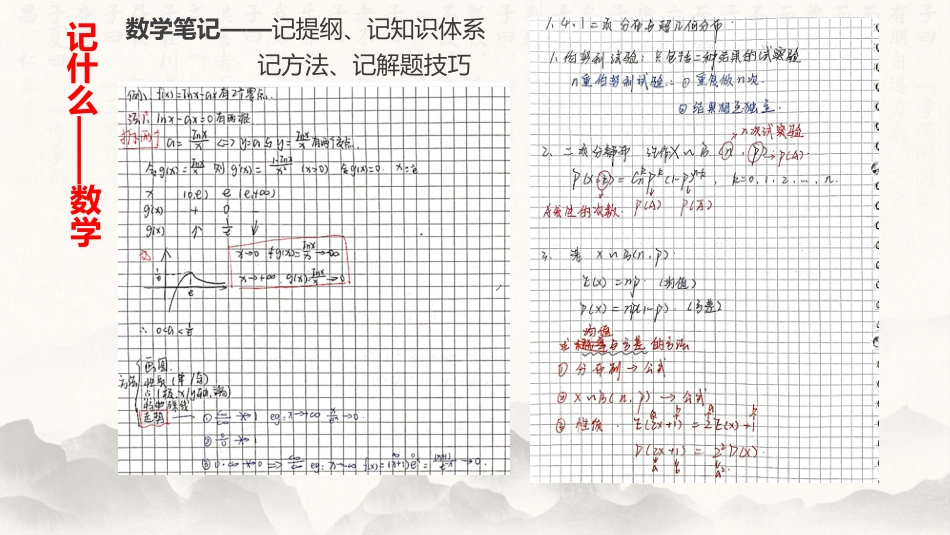 记什么——数学
数学笔记——记提纲、记知识体系
记方法、记解题技巧
例1、f(x)=lnx-ax有2个零点.
法1、lnx-ax=0有两根
a=lnx/x ⟺ y=a与y=lnx/x有两个交点.
令g(x)=lnx/x 则g'(x)=1-lnx/x² (x>0) 令g'(x)=0. x=e
x (0,e) e (e,+∞)
g'(x) + 0
g(x) ↑ 1/e ↓
x→0 g(x)=lnx/x→-∞
x→+∞ g(x)=lnx/x→0
1/e
e
∴ 0<a<1/e
画图.
走势
① ∞/∞ eg: x→+∞
② 0/0
③ 0·∞ ⟹ ∞/∞ eg: x→-∞ f(x)=(x+1)eˣ= (x+1)/e⁻ˣ →0.
1.4.1二项分布与超几何分布.
1、伯努利试验:只包括二种结果的试验
n重伯努利试验:①重复做n次.
②结果相互独立.
n次试验
2、二项分布 记作X∽B(n, p) →p(A)
P(X=k)=Cₙᵏpᵏ(1-p)ⁿ⁻ᵏ, k=0,1,2,…,n.
A发生的次数. P(A) P(Ā)
3、若X∽B(n,p).
E(X)=np. (均值)
D(X)=np(1-p). (方差)
均值
求 与方差的方法
① 分布列→公式
② X∽B(n,p)→公式
③ 性质. E(2x+1)=2E(x)+1
D(2x+1)=2²D(X).